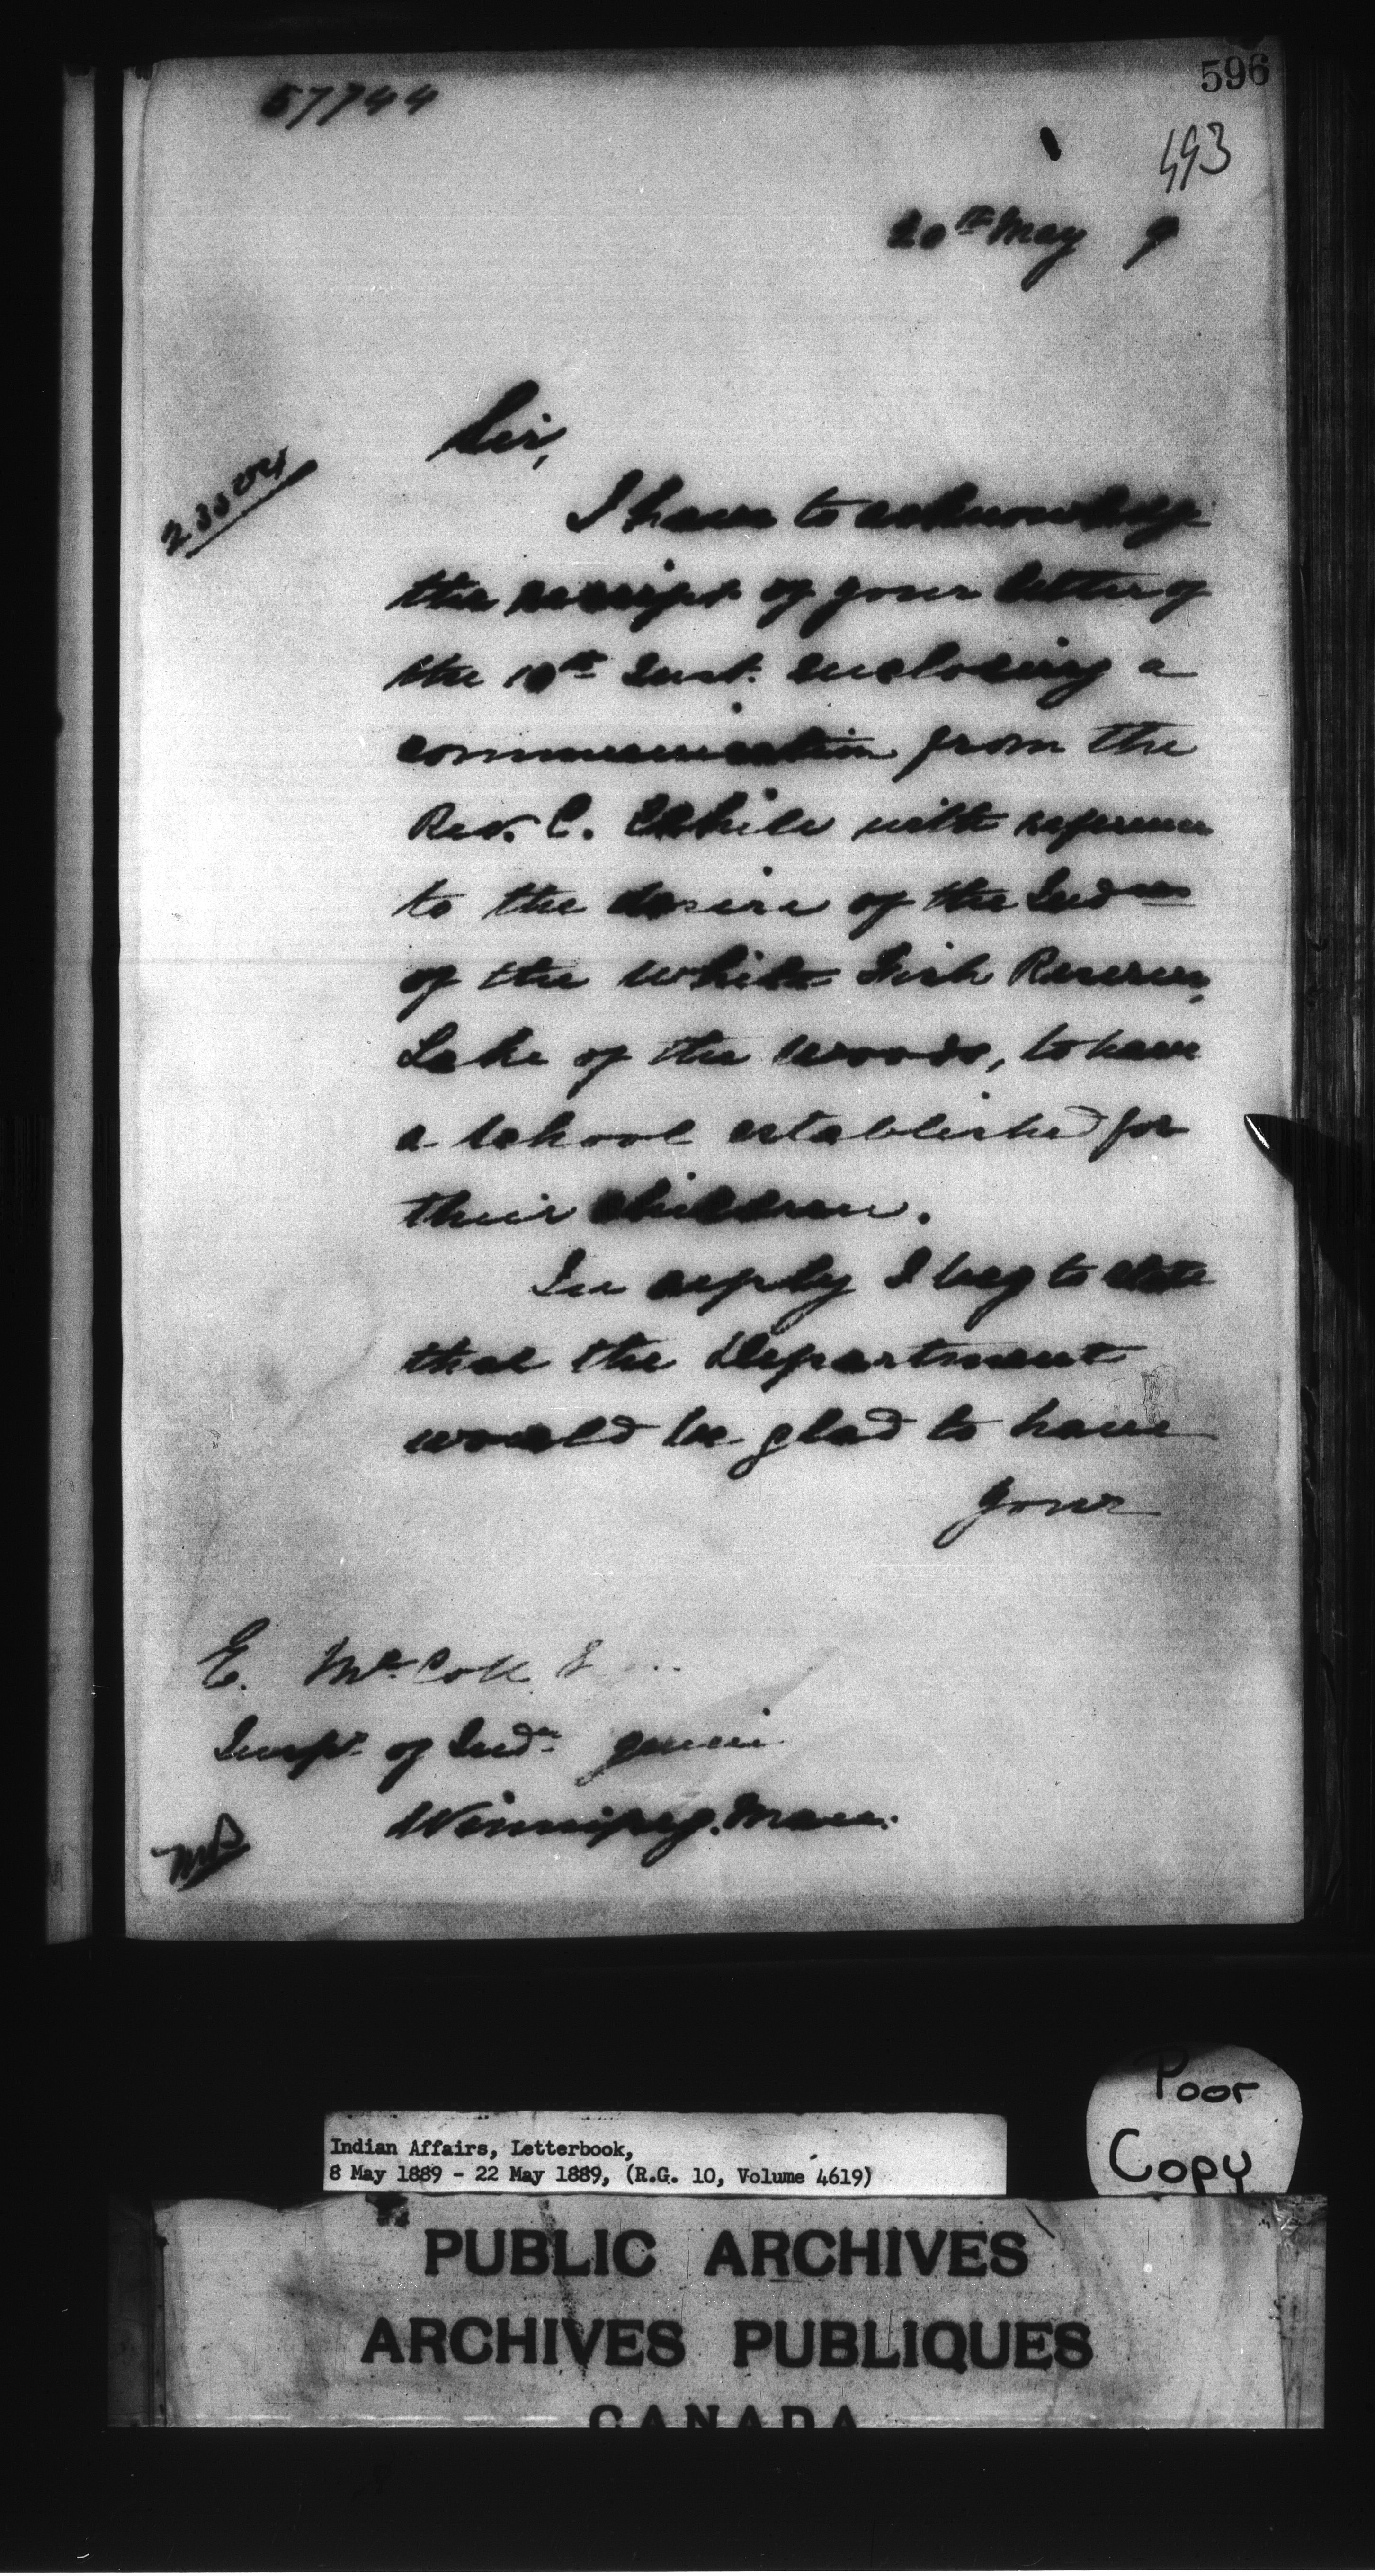 596
57744
493
20th May 9
Sir,
I have to acknowledge
the receipt of your letter of
the 10th Inst. enclosing a
communication from the
Rev. C. with reference
to the desire of the Indns
of the White Fish Reserve,
Lake of the Woods, to have
a school established for
their children.
In reply I beg to state
that the Department
would be glad to have
your
E. McColl E
Inspr. of Indn
Winnipeg. Man.
Poor
Copy
Indian Affairs, Letterbook,
8 May 1889 - 22 May 1889, (R.G. 10, Volume 4619)
PUBLIC ARCHIVES
ARCHIVES PUBLIQUES
CANADA